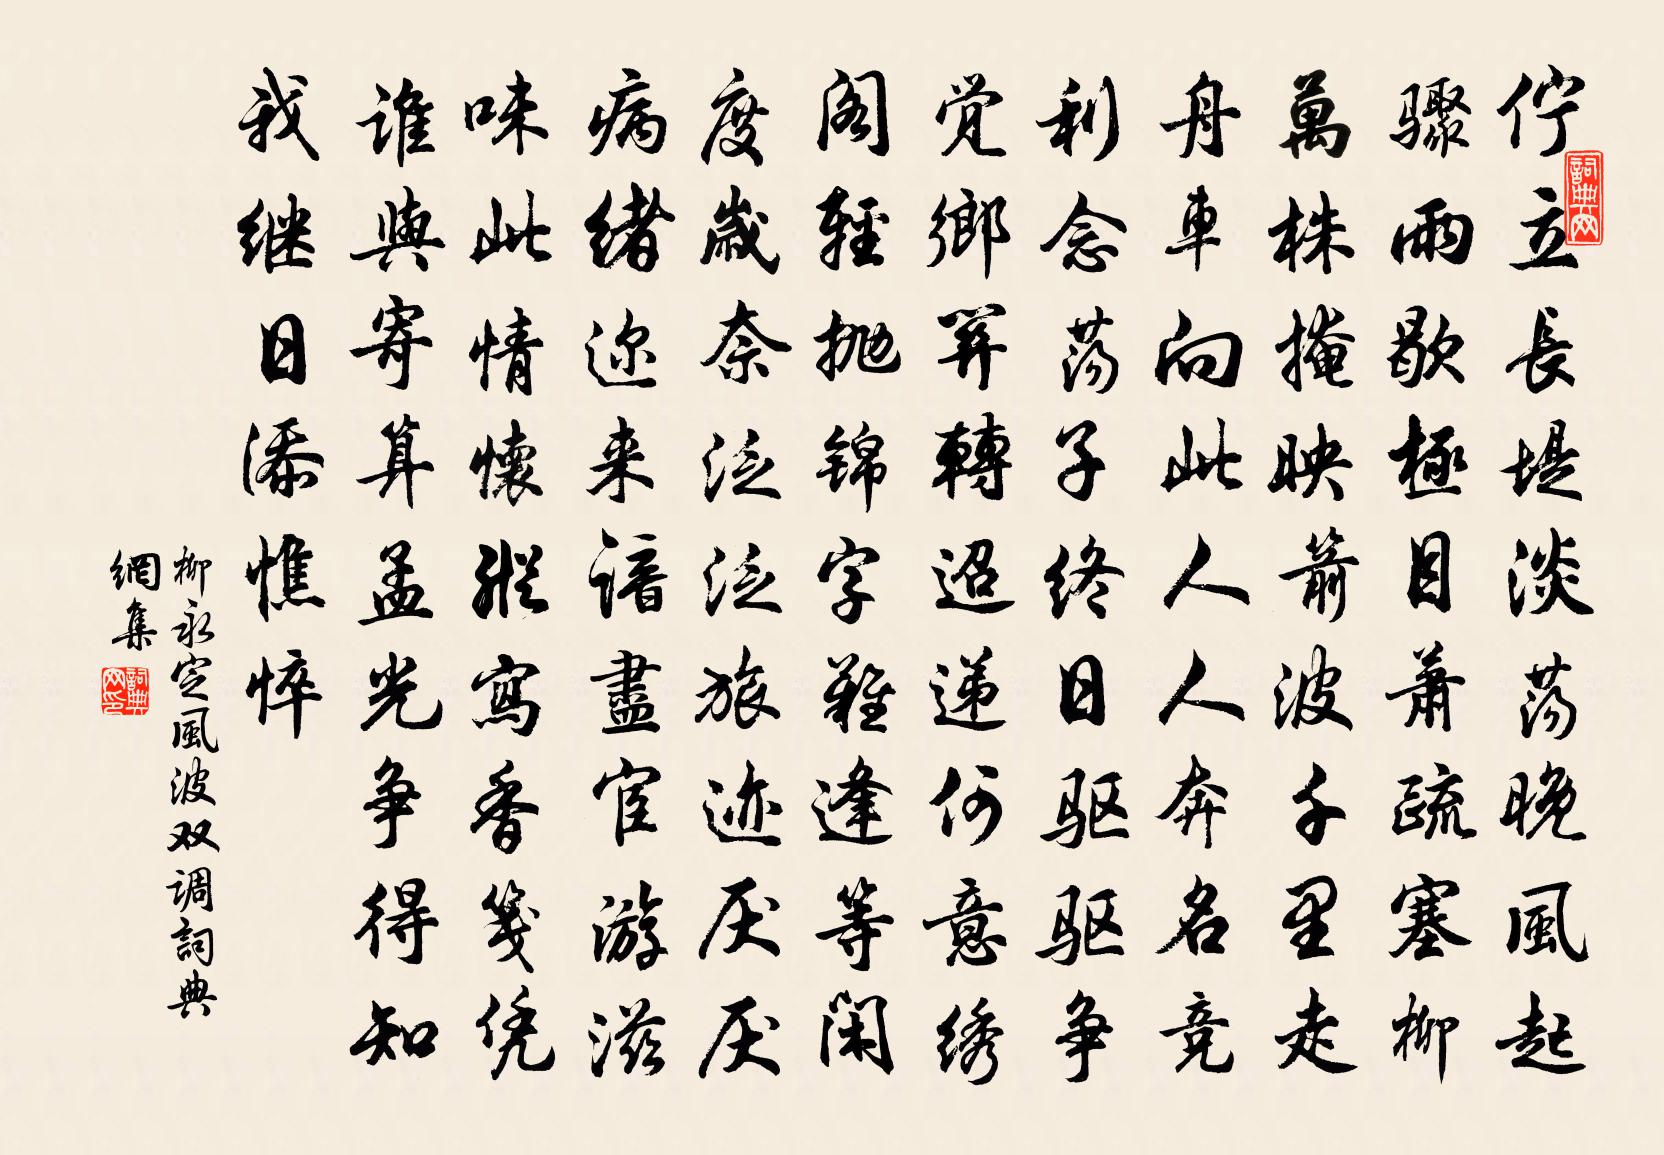 佇立長堤淡荡晚風起
骤雨歇極目蕭疏塞柳
萬株掩映箭波千里走
舟車向此人人奔名竞
利念荡子终日驱驱争
觉鄉関轉迢递何意绣
阁輕抛锦字難逢等閑
度歲奈泛泛旅迹厌厌
病绪迩来谙盡宦游滋
味此情懷縱寫香箋凭
谁與寄算孟光争得知
我继日添憔悴
柳永定風波双调詞典
網集
詞典网
詞典网印